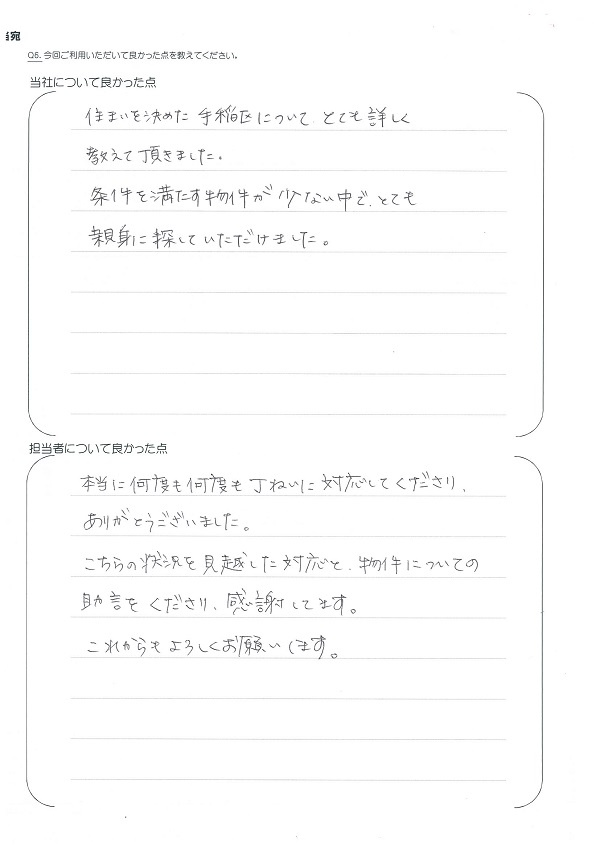 当宛
Q6. 今回ご利用いただいて良かった点を教えてください。
当社について良かった点
住まいを決めた 手稲区について とても詳しく
教えて頂きました。
条件を満たす物件が少ない中で、とても
親身に探していただけました。
担当者について良かった点
本当に何度も何度も丁ねいに対応してくださり、
ありがとうございました。
こちらの状況を見越した対応と、物件についての
助言をくださり、感謝してます。
これからもよろしくお願いします。